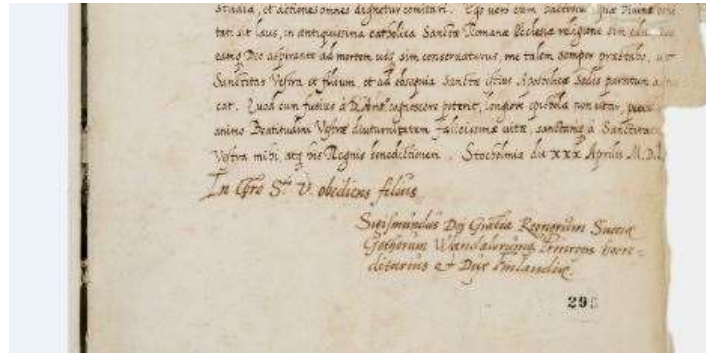 studia, et actiones omnes dignetur comitari. Ego vero cum
tati sit laus, in antiquissima catholica Sanctæ Romanæ Ecclesiæ religione sim
eamq Deo aspirante ad mortem usq sim conservaturus, me talem semper præstabo, ut
Sanctitas Vestra et filium, et ad obsequia Sanctæ istius Apostolicæ Sedis paratum
cat. Quod cum fusius à cognoscere poterit, longiore epistola non utar,
animo Beatitudini Vestræ diuturnitatem fælicissimæ vitæ, sanctamq à Sanctitate
Vestra mihi, atq his Regnis benedictionem. Stocholmia die XXX Aprilis M.D.
In Chro S.tis V. obediens filius
Sigismundus Dei Gratia Regnorum Sueciæ
Gothorum Wandalorumq Princeps hære-
ditarius et Dux Finlandiæ
295